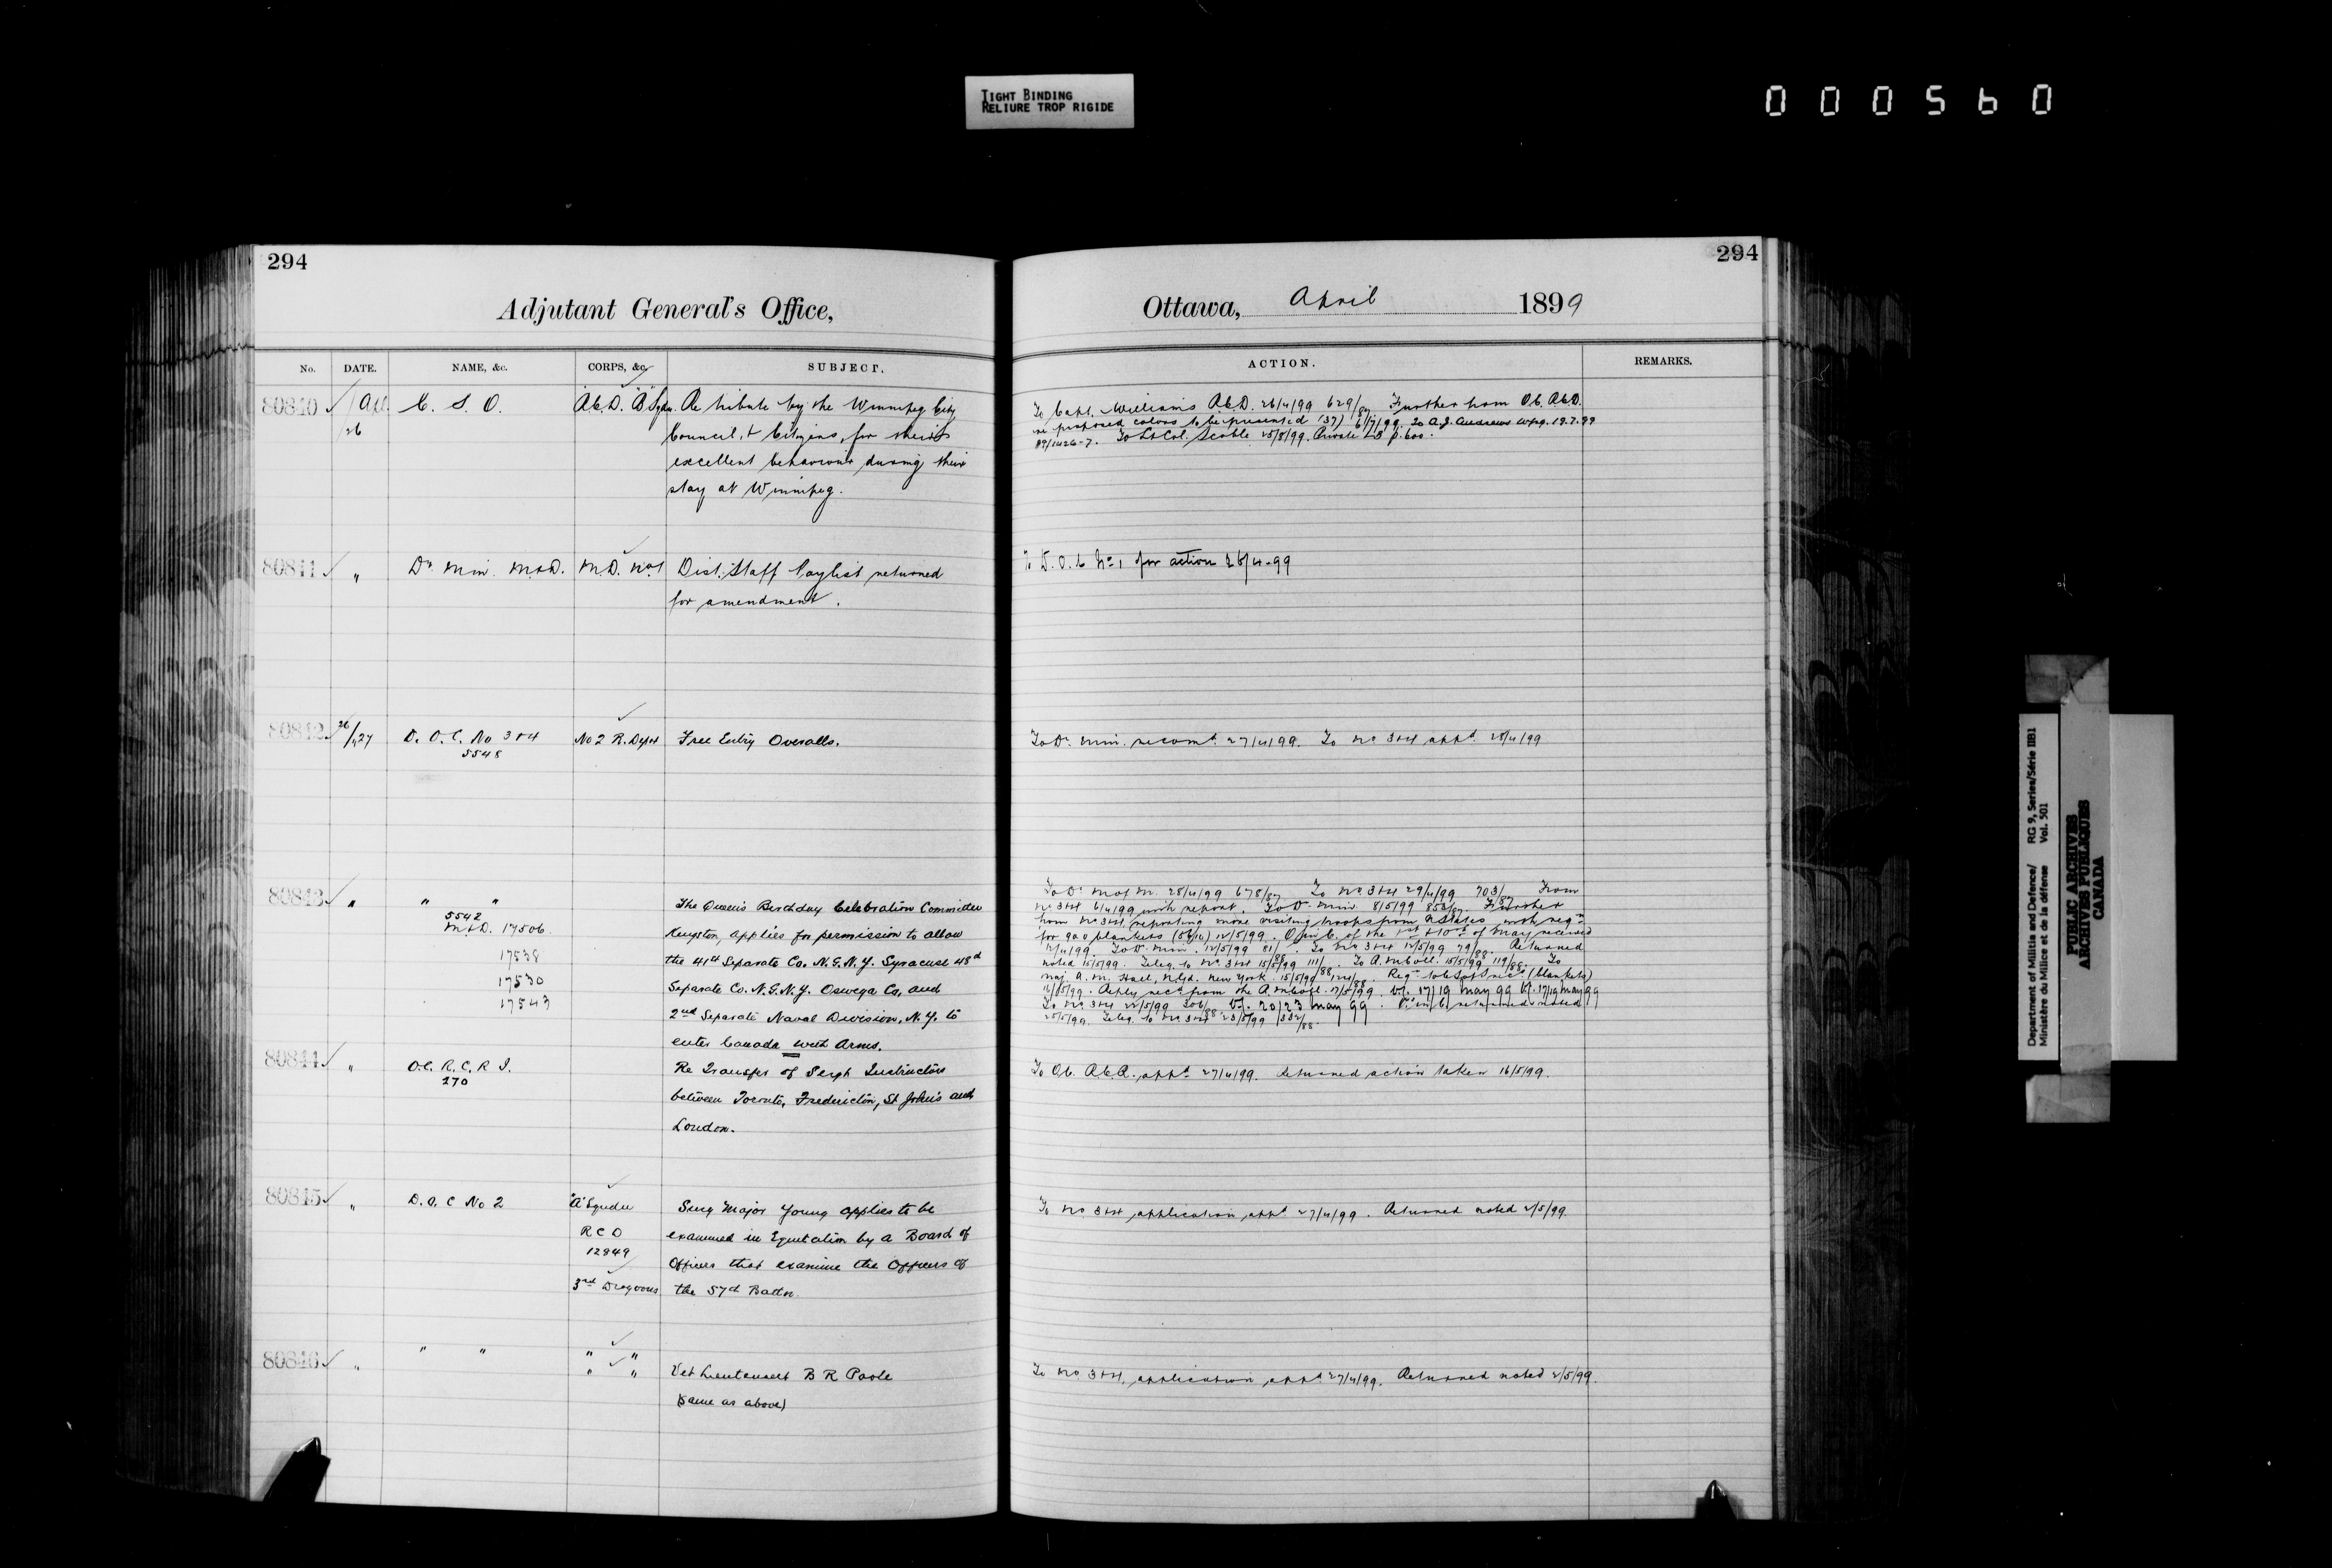 TIGHT BINDING
RELIURE TROP RIGIDE
000560
294
Adjutant General's Office,
No. DATE. NAME, &c. CORPS, &c. SUBJECT.
80840 Apl 26 C. S. O. R.C.D. "B" Sqdn. Re tribute by the Winnipeg City
Council, & Citizens, for their
excellent behaviour during their
stay at Winnipeg.
80841 " Dr. Min. M&D. M.D. No 1 Dist. Staff Paylist returned
for amendment.
80842 26/27 D. O. C. No 3&4 No 2 R. Depot Free Entry Overalls.
5548
80843 " " "
The Queen's Birthday Celebration Committee
5542
M&D. 17506.
Kingston, applies for permission to allow
17538
the 41st Separate Co. N.G.N.Y. Syracuse 48th
17530
Separate Co. N.G.N.Y. Oswega Co, and
17543
2nd Separate Naval Division, N.Y. to
enter Canada with Arms.
80844 " O.C. R.C.R I. Re Transfer of Sergt Instructors
270
between Toronto, Fredericton, St John's and
London.
80845 " D.O.C No 2 "A" Squdn Serg Major Young applies to be
R C D examined in Equitation by a Board of
12849
Officers that examine the Officers of
3rd Dragoons the 57th Battn.
80846 " " " " "
" " Vet Lieutenant B R Poole
(Same as above)
294
Ottawa, April 1899
ACTION. REMARKS.
To Capt. Williams R.C.D. 26/4/99 629/87 Further from O.C. R.C.D.
re proposed colors to be presented (37) 6/7/99. To A.J. Andrews Wpg. 19.7.99
89/1426-7. To Lt Col. Scoble 25/8/99. Private LB p.600.
To D.O.C No 1 for action 26/4-99
To Dr. Min. recomd. 27/4/99. To No 3&4 appd. 28/4/99
To Dr. M of M. 28/4/99 678/87 To No 3&4 29/4/99 703/87 From
No 3&4 6/4/99 with report. To Dr. Min 8/5/99 853/87. Further
from No 3&4, reporting more visiting troops from States with reqn
for 900 blankets 12/5/99. O in C. of the 1st & 10th of May received
12/4/99. To Dr. Min. 12/5/99 81/88. To No 3&4 12/5/99 79/88. Returned
noted 15/5/99. Teleg. to No 3&4 15/5/99 111/88. To 15/5/99 119/88. To
Maj. A. M. Hall, New York 15/5/99 (blankets)
16/5/99. Reply recd from the 17/5/99. V.J. 17/19 May 99 V.J. 17/19 May 99
To No 3&4 22/5/99 V.J. 20/23 May 99. O in C. returned noted
25/5/99. Teleg. to No 3&4 23/5/99 332/88.
To O.C. R.C.R. appd. 27/4/99. Returned action taken 16/5/99.
To No 3&4 application appd 27/4/99. Returned noted 2/5/99.
To No 3&4, application appd. 27/4/99. Returned noted 2/5/99.
Department of Militia and Defence/ RG 9, Series/Série IIB1
Ministère du Milice et de la défense Vol. 501
PUBLIC ARCHIVES
ARCHIVES PUBLIQUES
CANADA